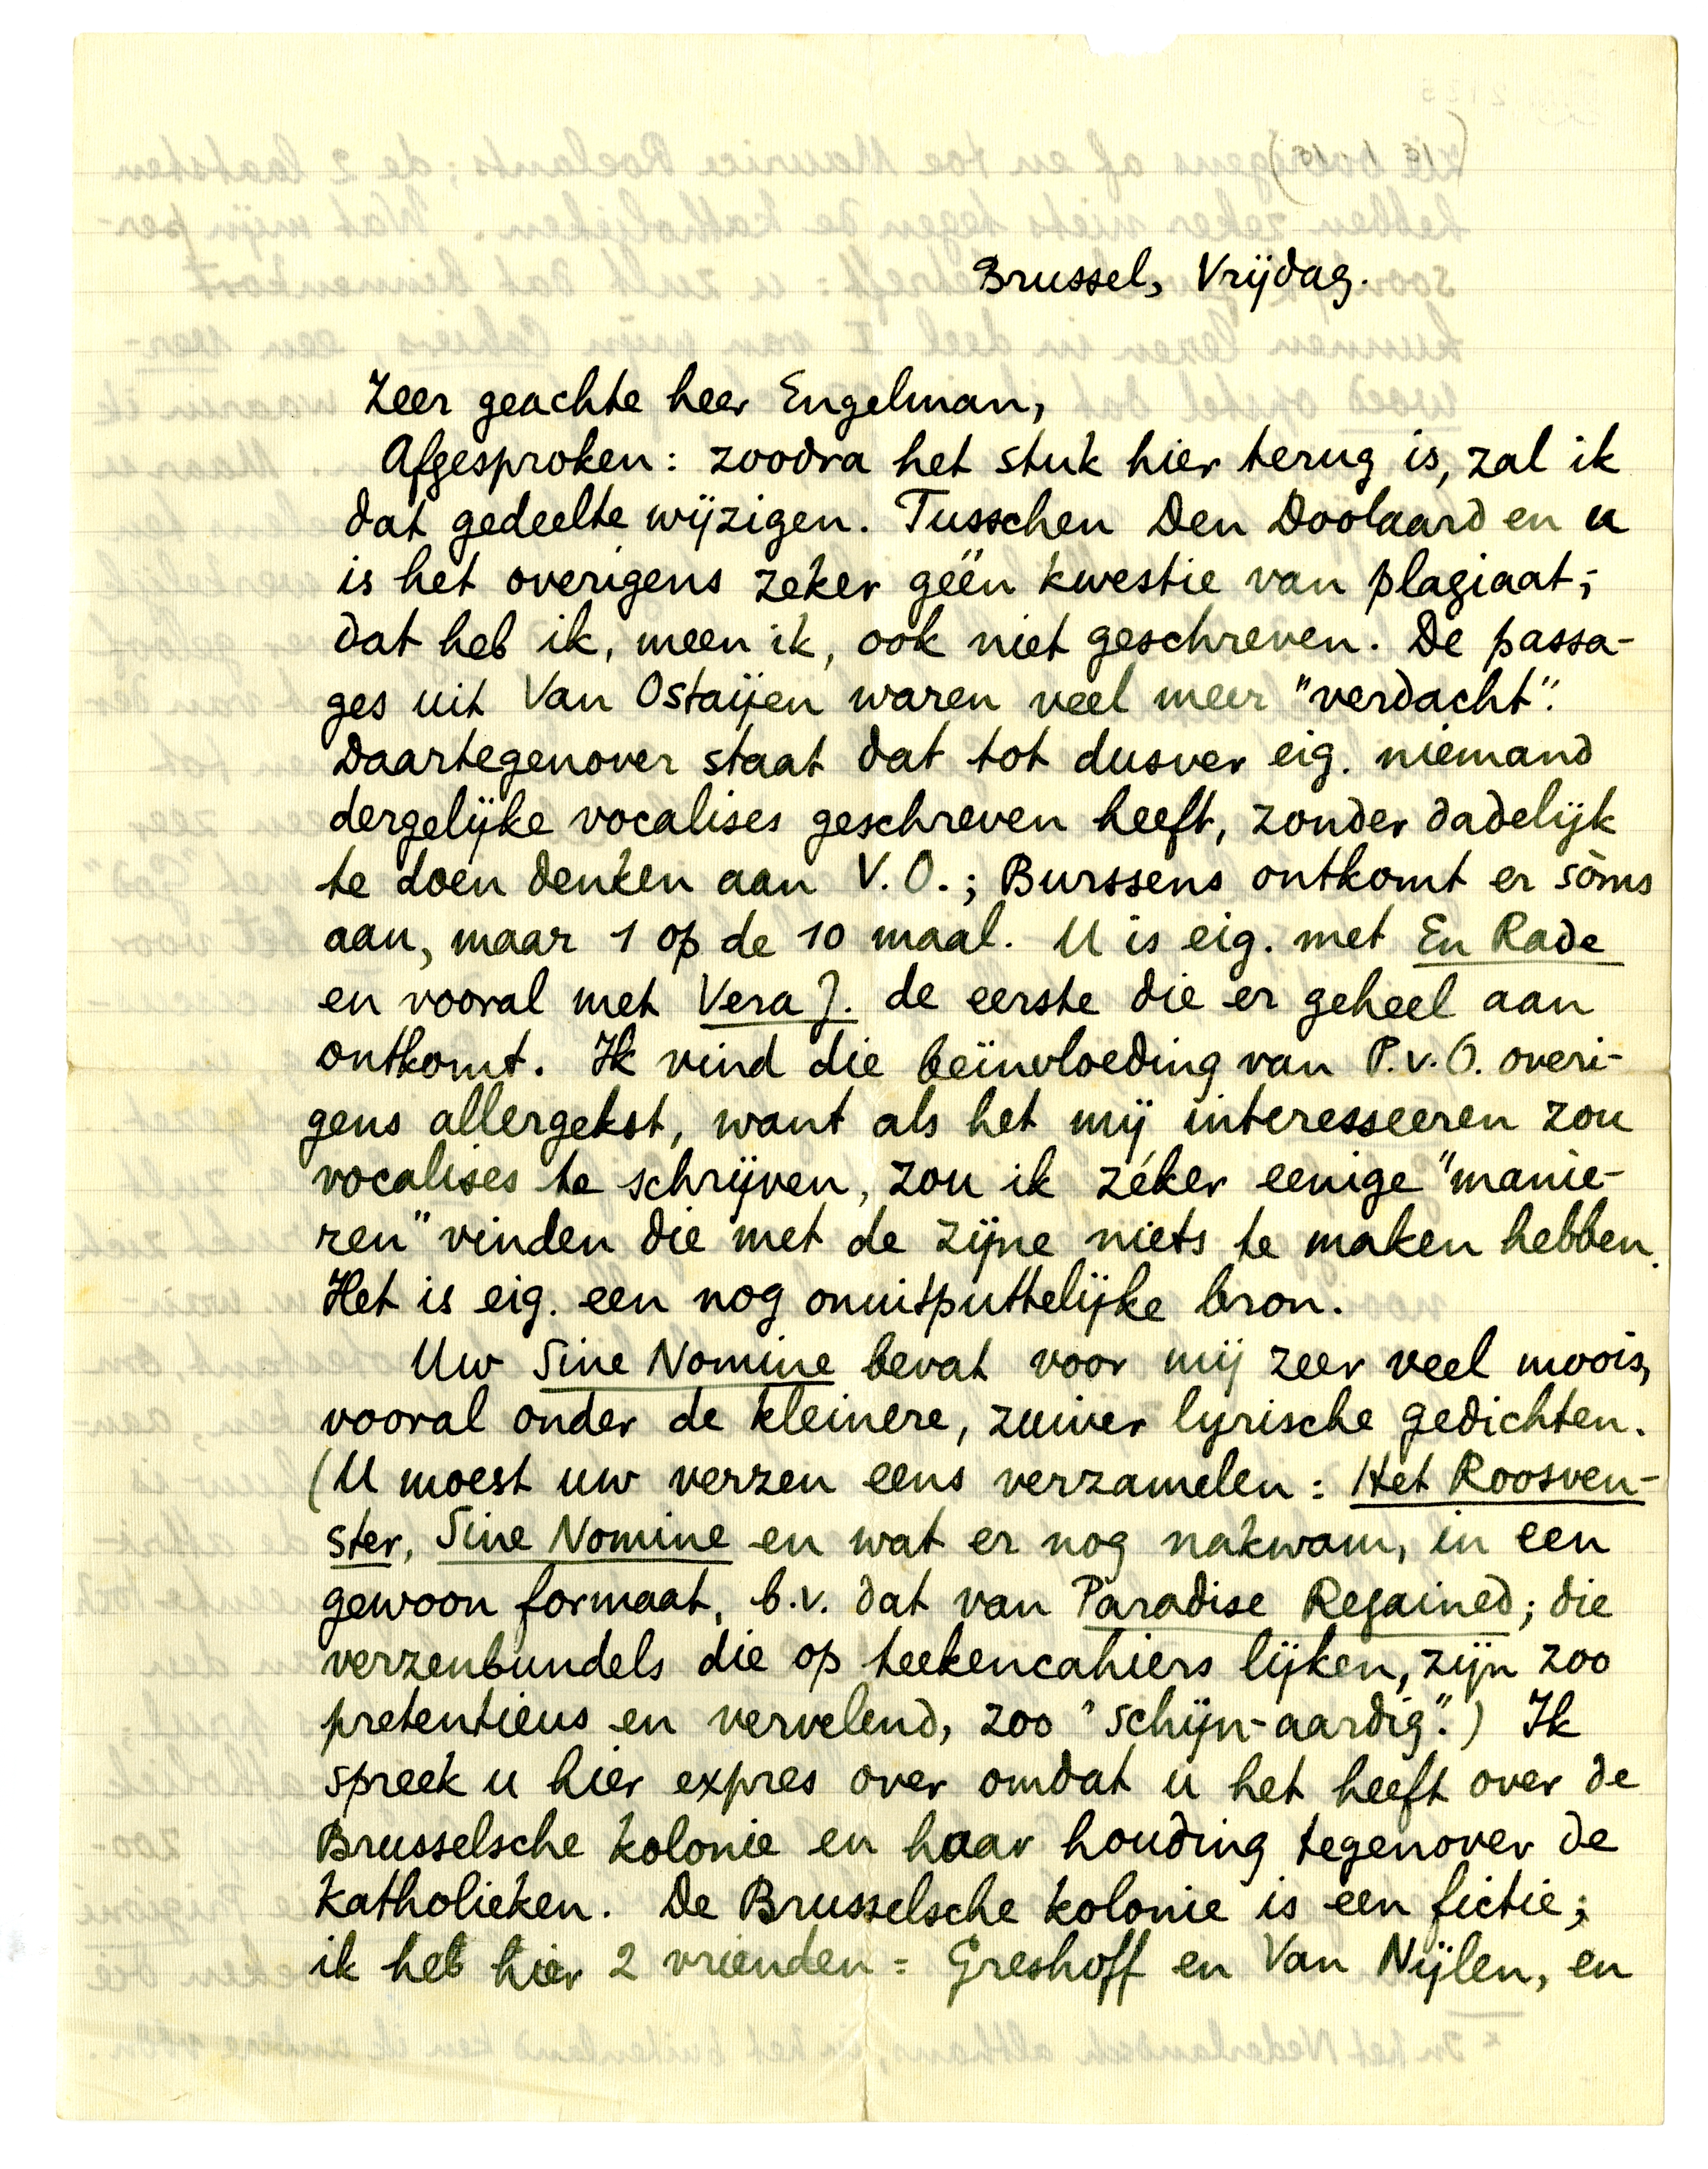 Brussel, Vrijdag.
Zeer geachte heer Engelman,
Afgesproken: zoodra het stuk hier terug is, zal ik
dat gedeelte wijzigen. Tusschen Den Doolaard en u
is het overigens zeker géén kwestie van plagiaat;
dat heb ik, meen ik, ook niet geschreven. De passa-
ges uit Van Ostaijen waren veel meer "verdacht".
Daartegenover staat dat tot dusver eig. niemand
dergelijke vocalises geschreven heeft, zonder dadelijk
te doen denken aan V.O.; Burssens ontkomt er sòms
aan, maar 1 op de 10 maal. U is eig. met En Rade
en vooral met Vera J. de eerste die er geheel aan
ontkomt. Ik vind die beïnvloeding van P.v.O. overi-
gens allergekst, want als het mij interesseeren zou
vocalises te schrijven, zou ik zéker eenige "manie-
ren" vinden die met de zijne niets te maken hebben.
Het is eig. een nog onuitputtelijke bron.
Uw Sine Nomine bevat voor mij zeer veel moois,
vooral onder de kleinere, zuiver lyrische gedichten.
(U moest uw verzen eens verzamelen: Het Roosven-
ster, Sine Nomine en wat er nog nakwam, in een
gewoon formaat, b.v. dat van Paradise Regained; die
verzenbundels die op teekencahiers lijken, zijn zoo
pretentieus en vervelend, zoo "schijn-aardig".) Ik
spreek u hier expres over omdat u het heeft over de
Brusselsche kolonie en haar houding tegenover de
katholieken. De Brusselsche kolonie is een fictie;
ik heb hier 2 vrienden: Greshoff en Van Nijlen, en